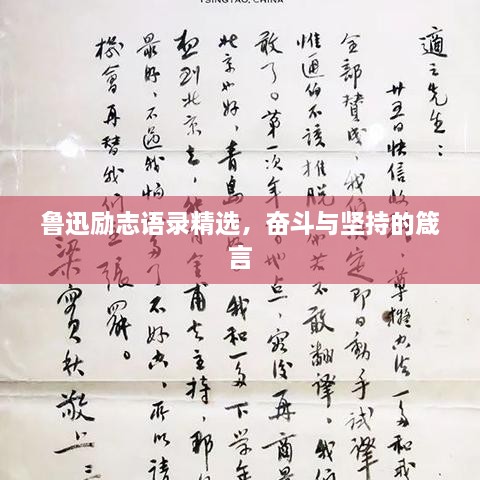 TSINGTAO, CHINA
適之先生：
廿五日快信收 尊擬办法一多和我
全部贊成，我们 定即日動手試譯
惟通伯不該推脫 若不敢翻譯，我
敢了。第一次年 地点，容后再商
北京也好，青島 我和一多下学年
想到北京去， 金甫去主持，那
最好，不過我怕 多了不好办，所以請
機會再替我们 張羅。
梁實秋敬上 三
鲁迅励志语录精选，奋斗与坚持的箴
言